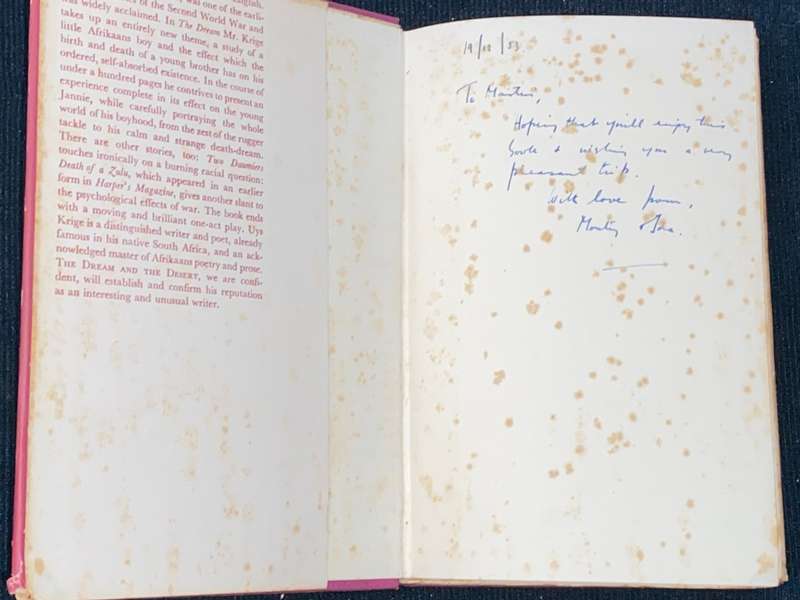 English.
was one of the earli-
of the Second World War and
was widely acclaimed. In The Dream Mr. Krige
takes up an entirely new theme, a study of a
little Afrikaans boy and the effect which the
birth and death of a young brother has on his
ordered, self-absorbed existence. In the course of
under a hundred pages he contrives to present an
experience complete in its effect on the young
Jannie, while carefully portraying the whole
world of his boyhood, from the zest of the rugger
tackle to his calm and strange death-dream.
There are other stories, too: Two Daumiers
touches ironically on a burning racial question:
Death of a Zulu, which appeared in an earlier
form in Harper's Magazine, gives another slant to
the psychological effects of war. The book ends
with a moving and brilliant one-act play. Uys
Krige is a distinguished writer and poet, already
famous in his native South Africa, and an ack-
nowledged master of Afrikaans poetry and prose.
THE DREAM AND THE DESERT, we are confi-
dent, will establish and confirm his reputation
as an interesting and unusual writer.
To
Hoping that you'll enjoy this
book & wishing you a very
pleasant trip.
With love from,
Monty &